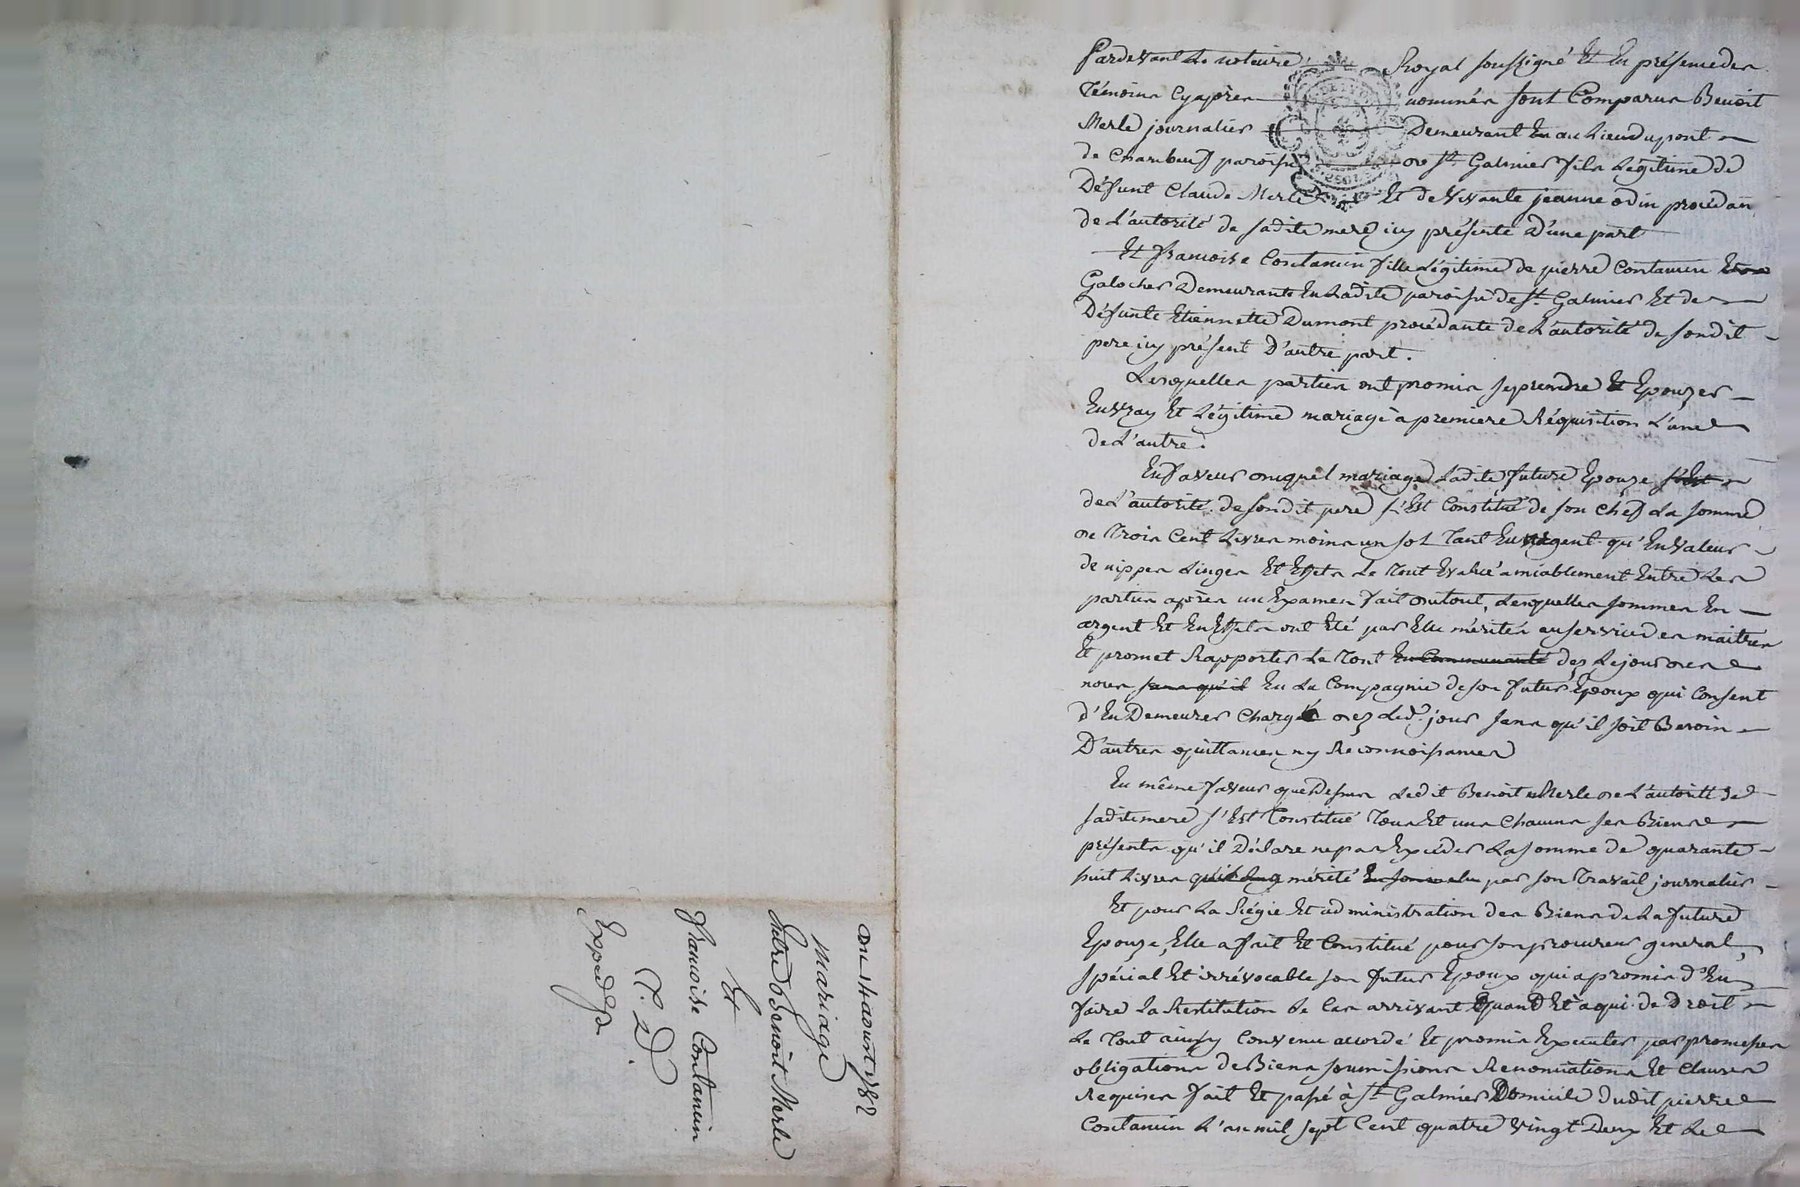 Pardevant Le notaire Royal soussigné Et En présence des
Témoins Cyaprès nommés sont Comparus Benoit
Merle journalier Demeurant En au Lieu du pont
de Chambeuf paroisse de St. Galmier fils Légitime de
Défunt Claude Merle Et de Vivante jeanne odin procédan
de L'autorité de sadite mere icy présente D'une part
Et francoise Contamin fille Légitime de pierre Contamin
Galocher Demeurante En Ladite paroisse de St. Galmier Et de
Défunte Etiennette Dumont procédante de L'autorité de sondit
pere icy présent D'autre part.
Lesquelles parties ont promis se prendre Et Epouzer
En vray Et Légitime mariage à premiere Réquisition L'une
de L'autre.
En faveur duquel mariage Ladite future Epouze s'Est
de L'autorité de sondit pere s'Est Constitué de son chef La somme
de Trois Cent Livres moins un sol Tant En argent qu'En valeur
de nippes Linges Et Effets Le Tout Evalué amiablement Entre Les
parties après un Examen fait du tout, Lesquelles sommes En
argent Et En Effets ont Eté par Elle mérités au service des maitres
Et promet Rapporter Le Tout En Communauté dez Le jour des
noces sans qu'il En La Compagnie de son futur Epoux qui Consent
d'En Demeurer Chargé dez Led. jour sans qu'il soit Besoin
D'autres quittances ny Reconnoissances
En même faveur que Dessus Ledit Benoit Merle de L'autorité de
sadite mere s'Est Constitué Tous Et uns Chacuns ses Biens
présents qu'il Déclare ne pas Excéder La somme de quarante
huit Livres mérité par son Travail journalier
Et pour La Régie Et administration des Biens de La future
Epouze, Elle a fait Et Constitué pour son procureur general,
spécial Et irrévocable son futur Epoux qui a promis d'En
faire La Restitution Le Cas arrivant Quand Et à qui de Droit
Le Tout ainsy Convenu accordé Et promis Executer par promesses
obligations de Biens soumissions Renonciations Et Clauses
Requises fait Et passé à St. Galmier Domicile dudit pierre
Contamin L'an mil sept Cent quatre vingt Deux Et Le
Du 14 aoust 1782
mariage
Entre Benoit Merle
Et
francoise Contamin
Exped.